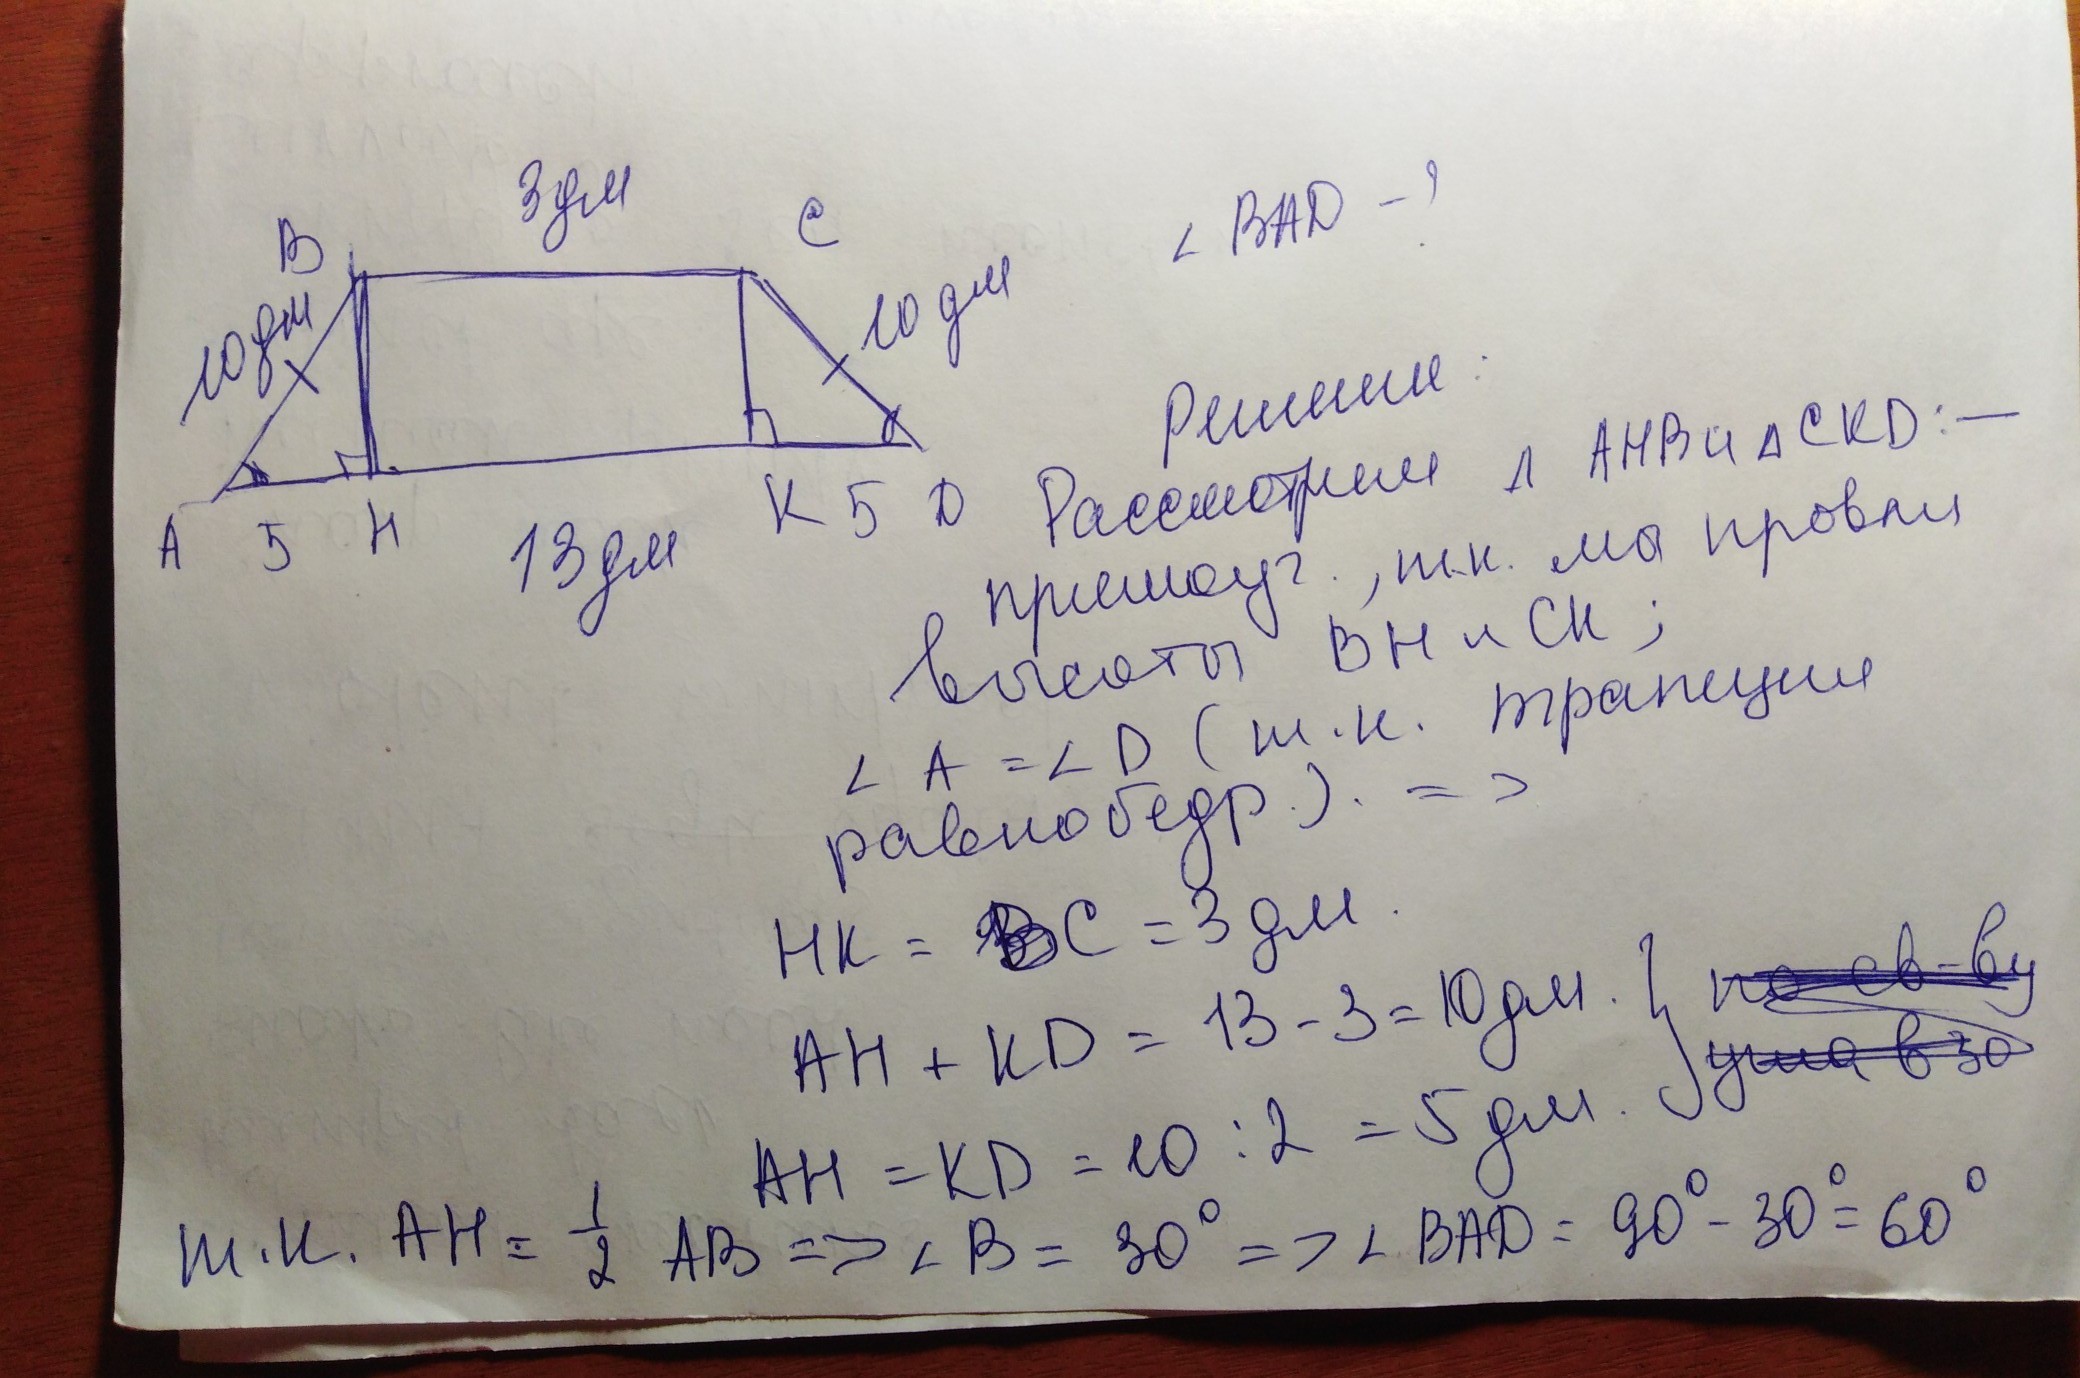 3 дм
B
C
∠ BAD - ?
10 дм
10 дм
A 5 H
13 дм
K 5 D
Решение:
Рассмотрим Δ AHB и Δ CKD: —
прямоуг., т.к. мы провели
высоты BH и CK;
∠ A = ∠ D (т.к. трапеция
равнобедр.). =>
HK = BC = 3 дм.
AH + KD = 13 - 3 = 10 дм.
по св-ву
угла в 30
AH = KD = 10 : 2 = 5 дм.
т.к. AH = 1/2 AB => ∠ B = 30° => ∠ BAD = 90° - 30° = 60°